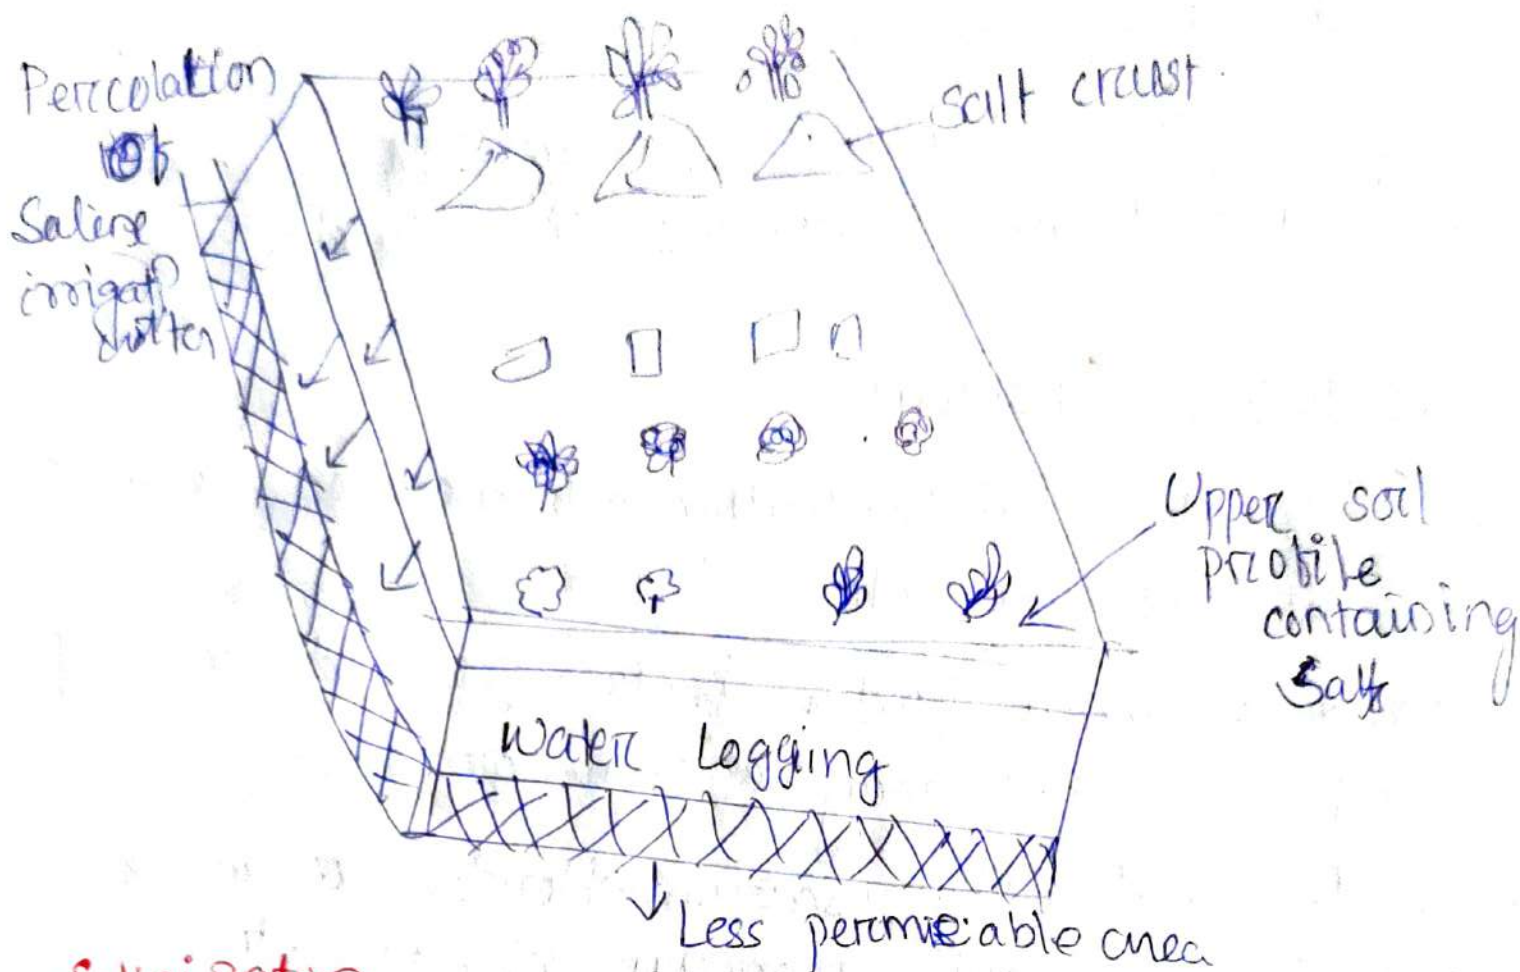 Percolation
of
Saline
irrigatn
water
Salt crust.
Upper soil
profile
containing
Salts
Water Logging
Less permeable area